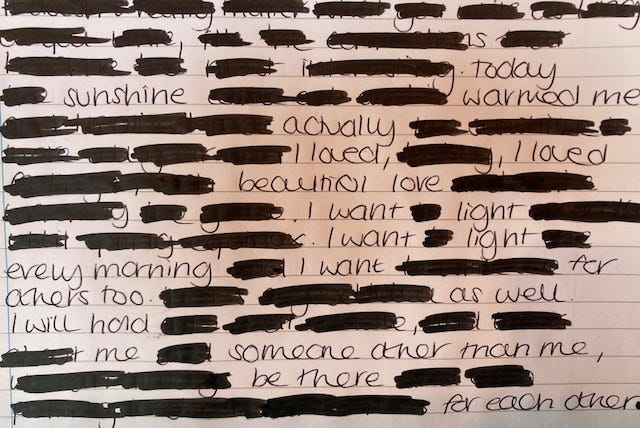 today
sunshine warmed me
actually
I loved, , I loved
beautiful love
. I want light
. I want light
every morning I want for
others too. as well.
I will hold ,
me someone other than me,
be there
for each other.